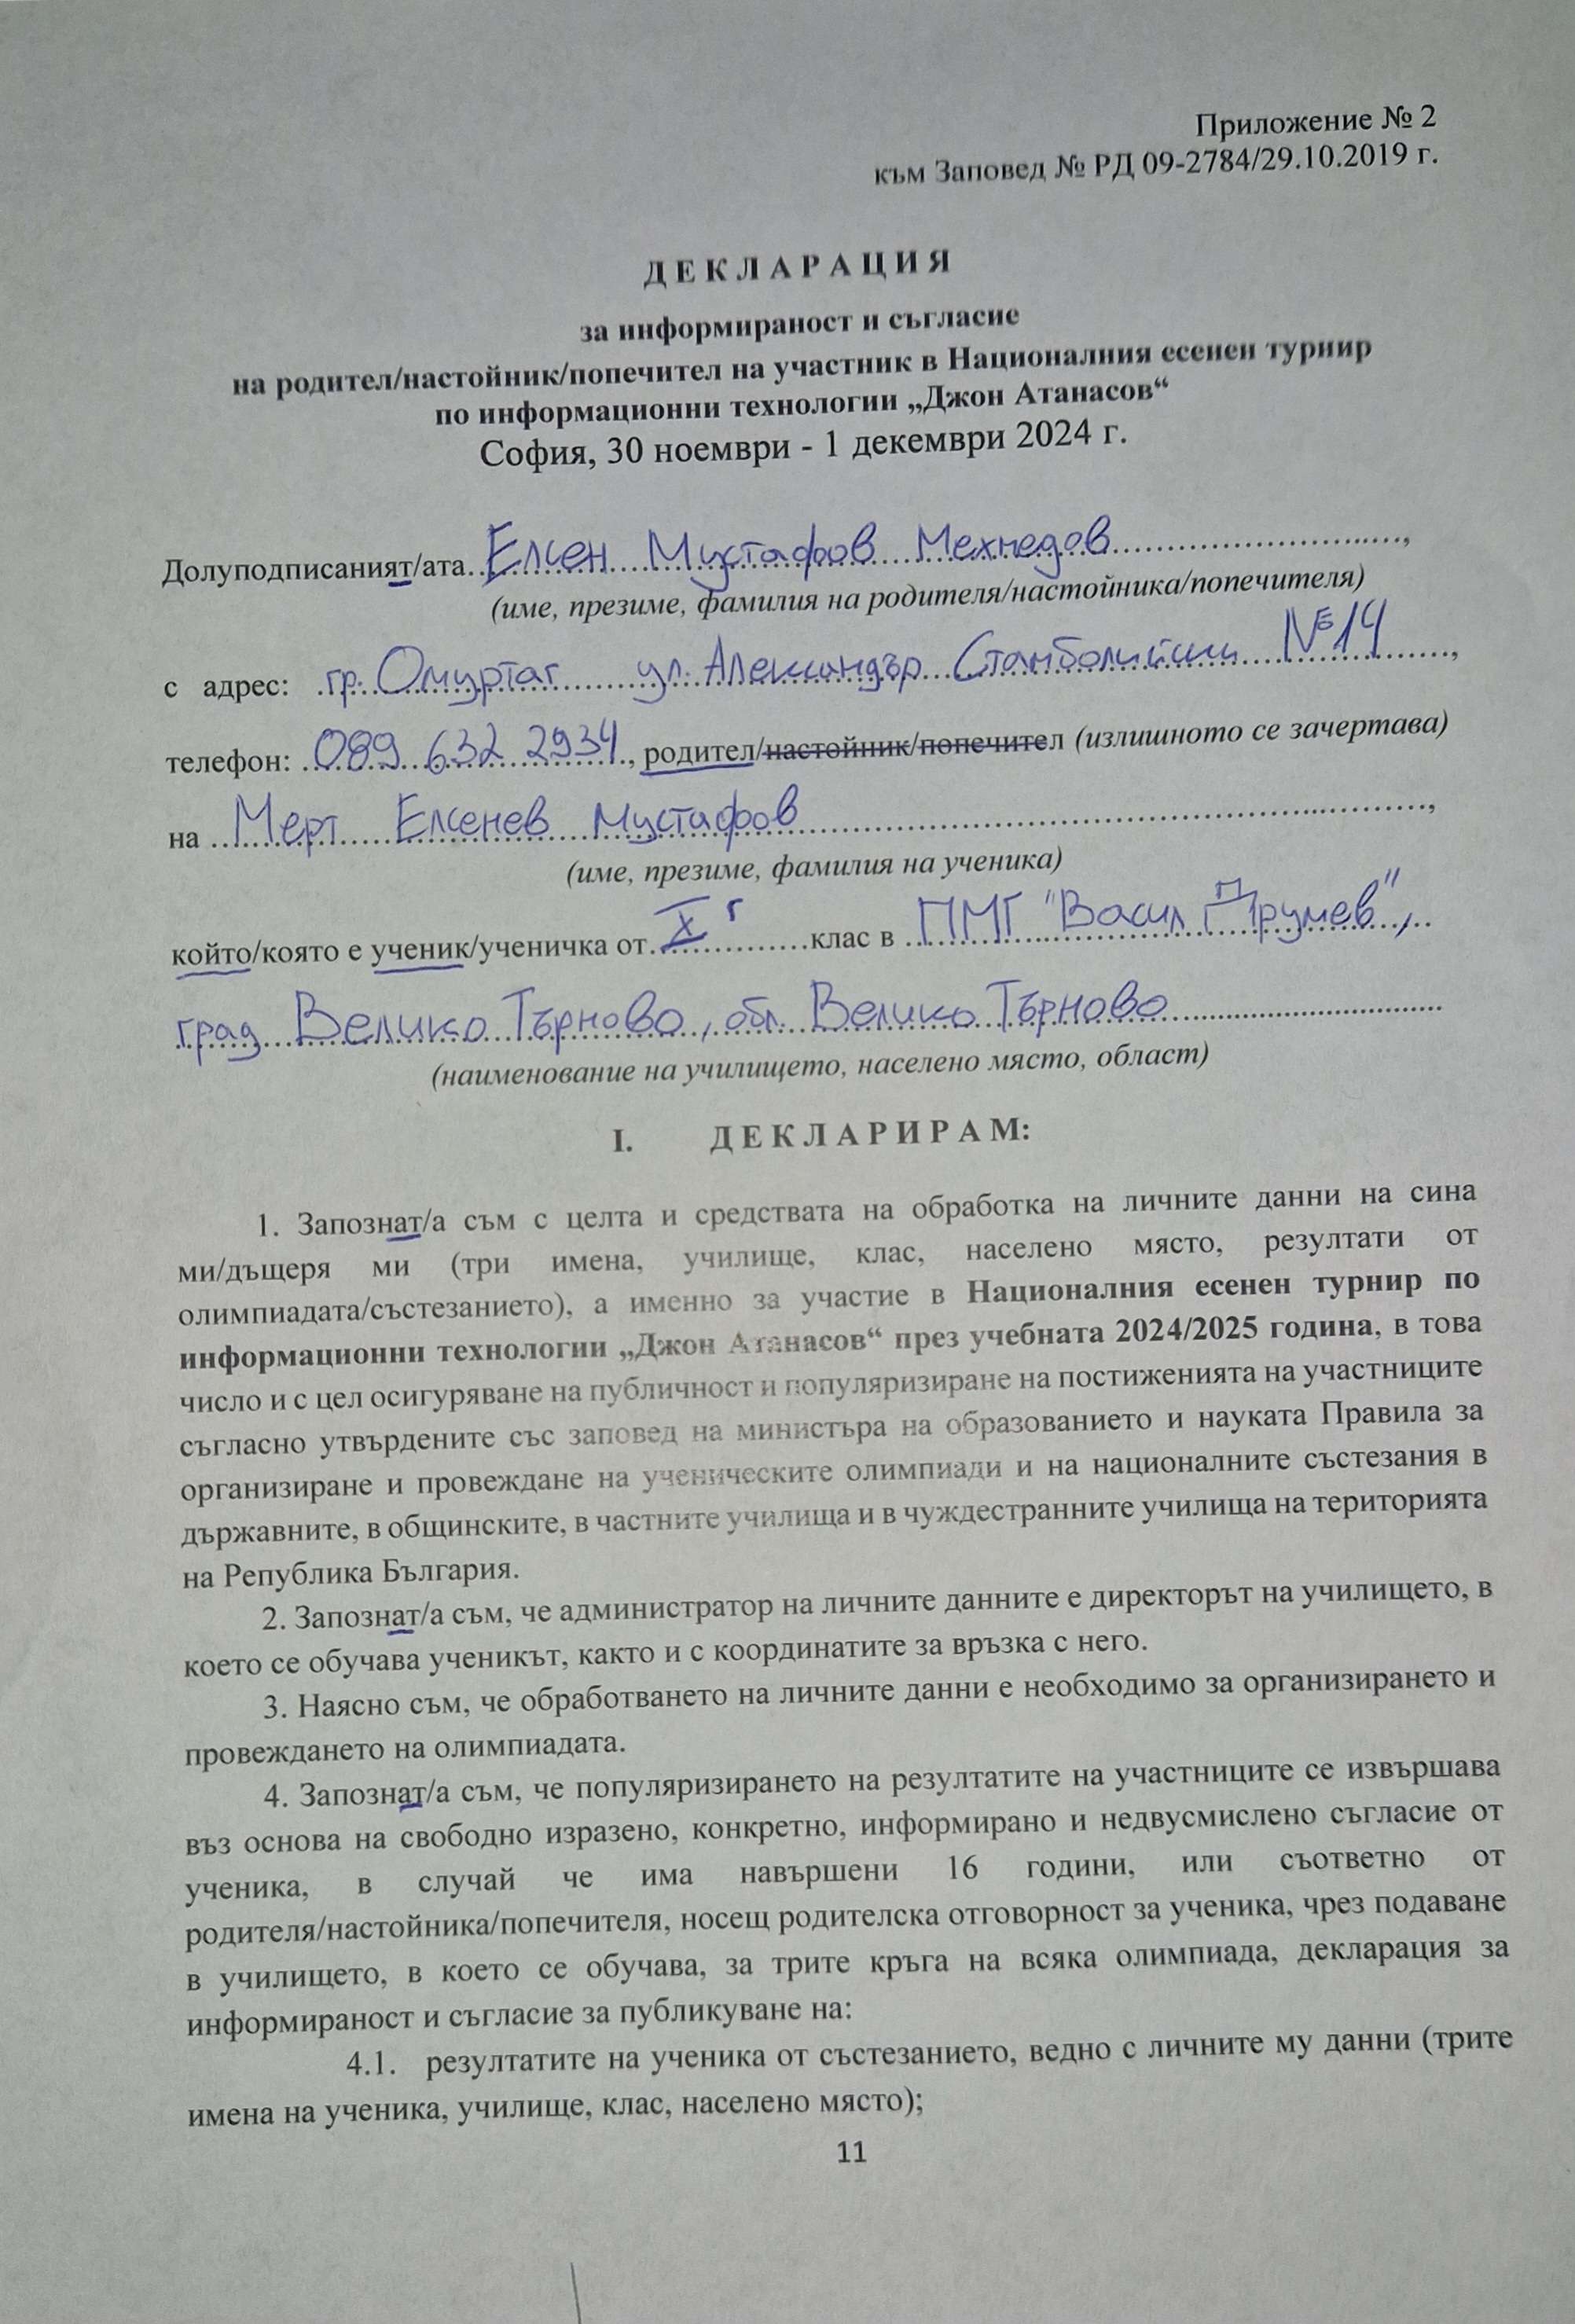 Приложение № 2
към Заповед № РД 09-2784/29.10.2019 г.
Д Е К Л А Р А Ц И Я
за информираност и съгласие
на родител/настойник/попечител на участник в Националния есенен турнир
по информационни технологии „Джон Атанасов“
София, 30 ноември - 1 декември 2024 г.
Долуподписаният/ата Елжен Мустафов Мехмедов
(име, презиме, фамилия на родителя/настойника/попечителя)
с адрес: гр. Омуртаг ул. Александър Стамболийски №14,
телефон: 089 632 2934, родител/настойник/попечител (излишното се зачертава)
на Мерт Елженев Мустафов,
(име, презиме, фамилия на ученика)
който/която е ученик/ученичка от X г клас в ПМГ "Васил Друмев",
град Велико Търново, обл. Велико Търново
(наименование на училището, населено място, област)
I. Д Е К Л А Р И Р А М:
1. Запознат/а съм с целта и средствата на обработка на личните данни на сина
ми/дъщеря ми (три имена, училище, клас, населено място, резултати от
олимпиадата/състезанието), а именно за участие в Националния есенен турнир по
информационни технологии „Джон Атанасов“ през учебната 2024/2025 година, в това
число и с цел осигуряване на публичност и популяризиране на постиженията на участниците
съгласно утвърдените със заповед на министъра на образованието и науката Правила за
организиране и провеждане на ученическите олимпиади и на националните състезания в
държавните, в общинските, в частните училища и в чуждестранните училища на територията
на Република България.
2. Запознат/а съм, че администратор на личните данните е директорът на училището, в
което се обучава ученикът, както и с координатите за връзка с него.
3. Наясно съм, че обработването на личните данни е необходимо за организирането и
провеждането на олимпиадата.
4. Запознат/а съм, че популяризирането на резултатите на участниците се извършава
въз основа на свободно изразено, конкретно, информирано и недвусмислено съгласие от
ученика, в случай че има навършени 16 години, или съответно от
родителя/настойника/попечителя, носещ родителска отговорност за ученика, чрез подаване
в училището, в което се обучава, за трите кръга на всяка олимпиада, декларация за
информираност и съгласие за публикуване на:
4.1. резултатите на ученика от състезанието, ведно с личните му данни (трите
имена на ученика, училище, клас, населено място);
11